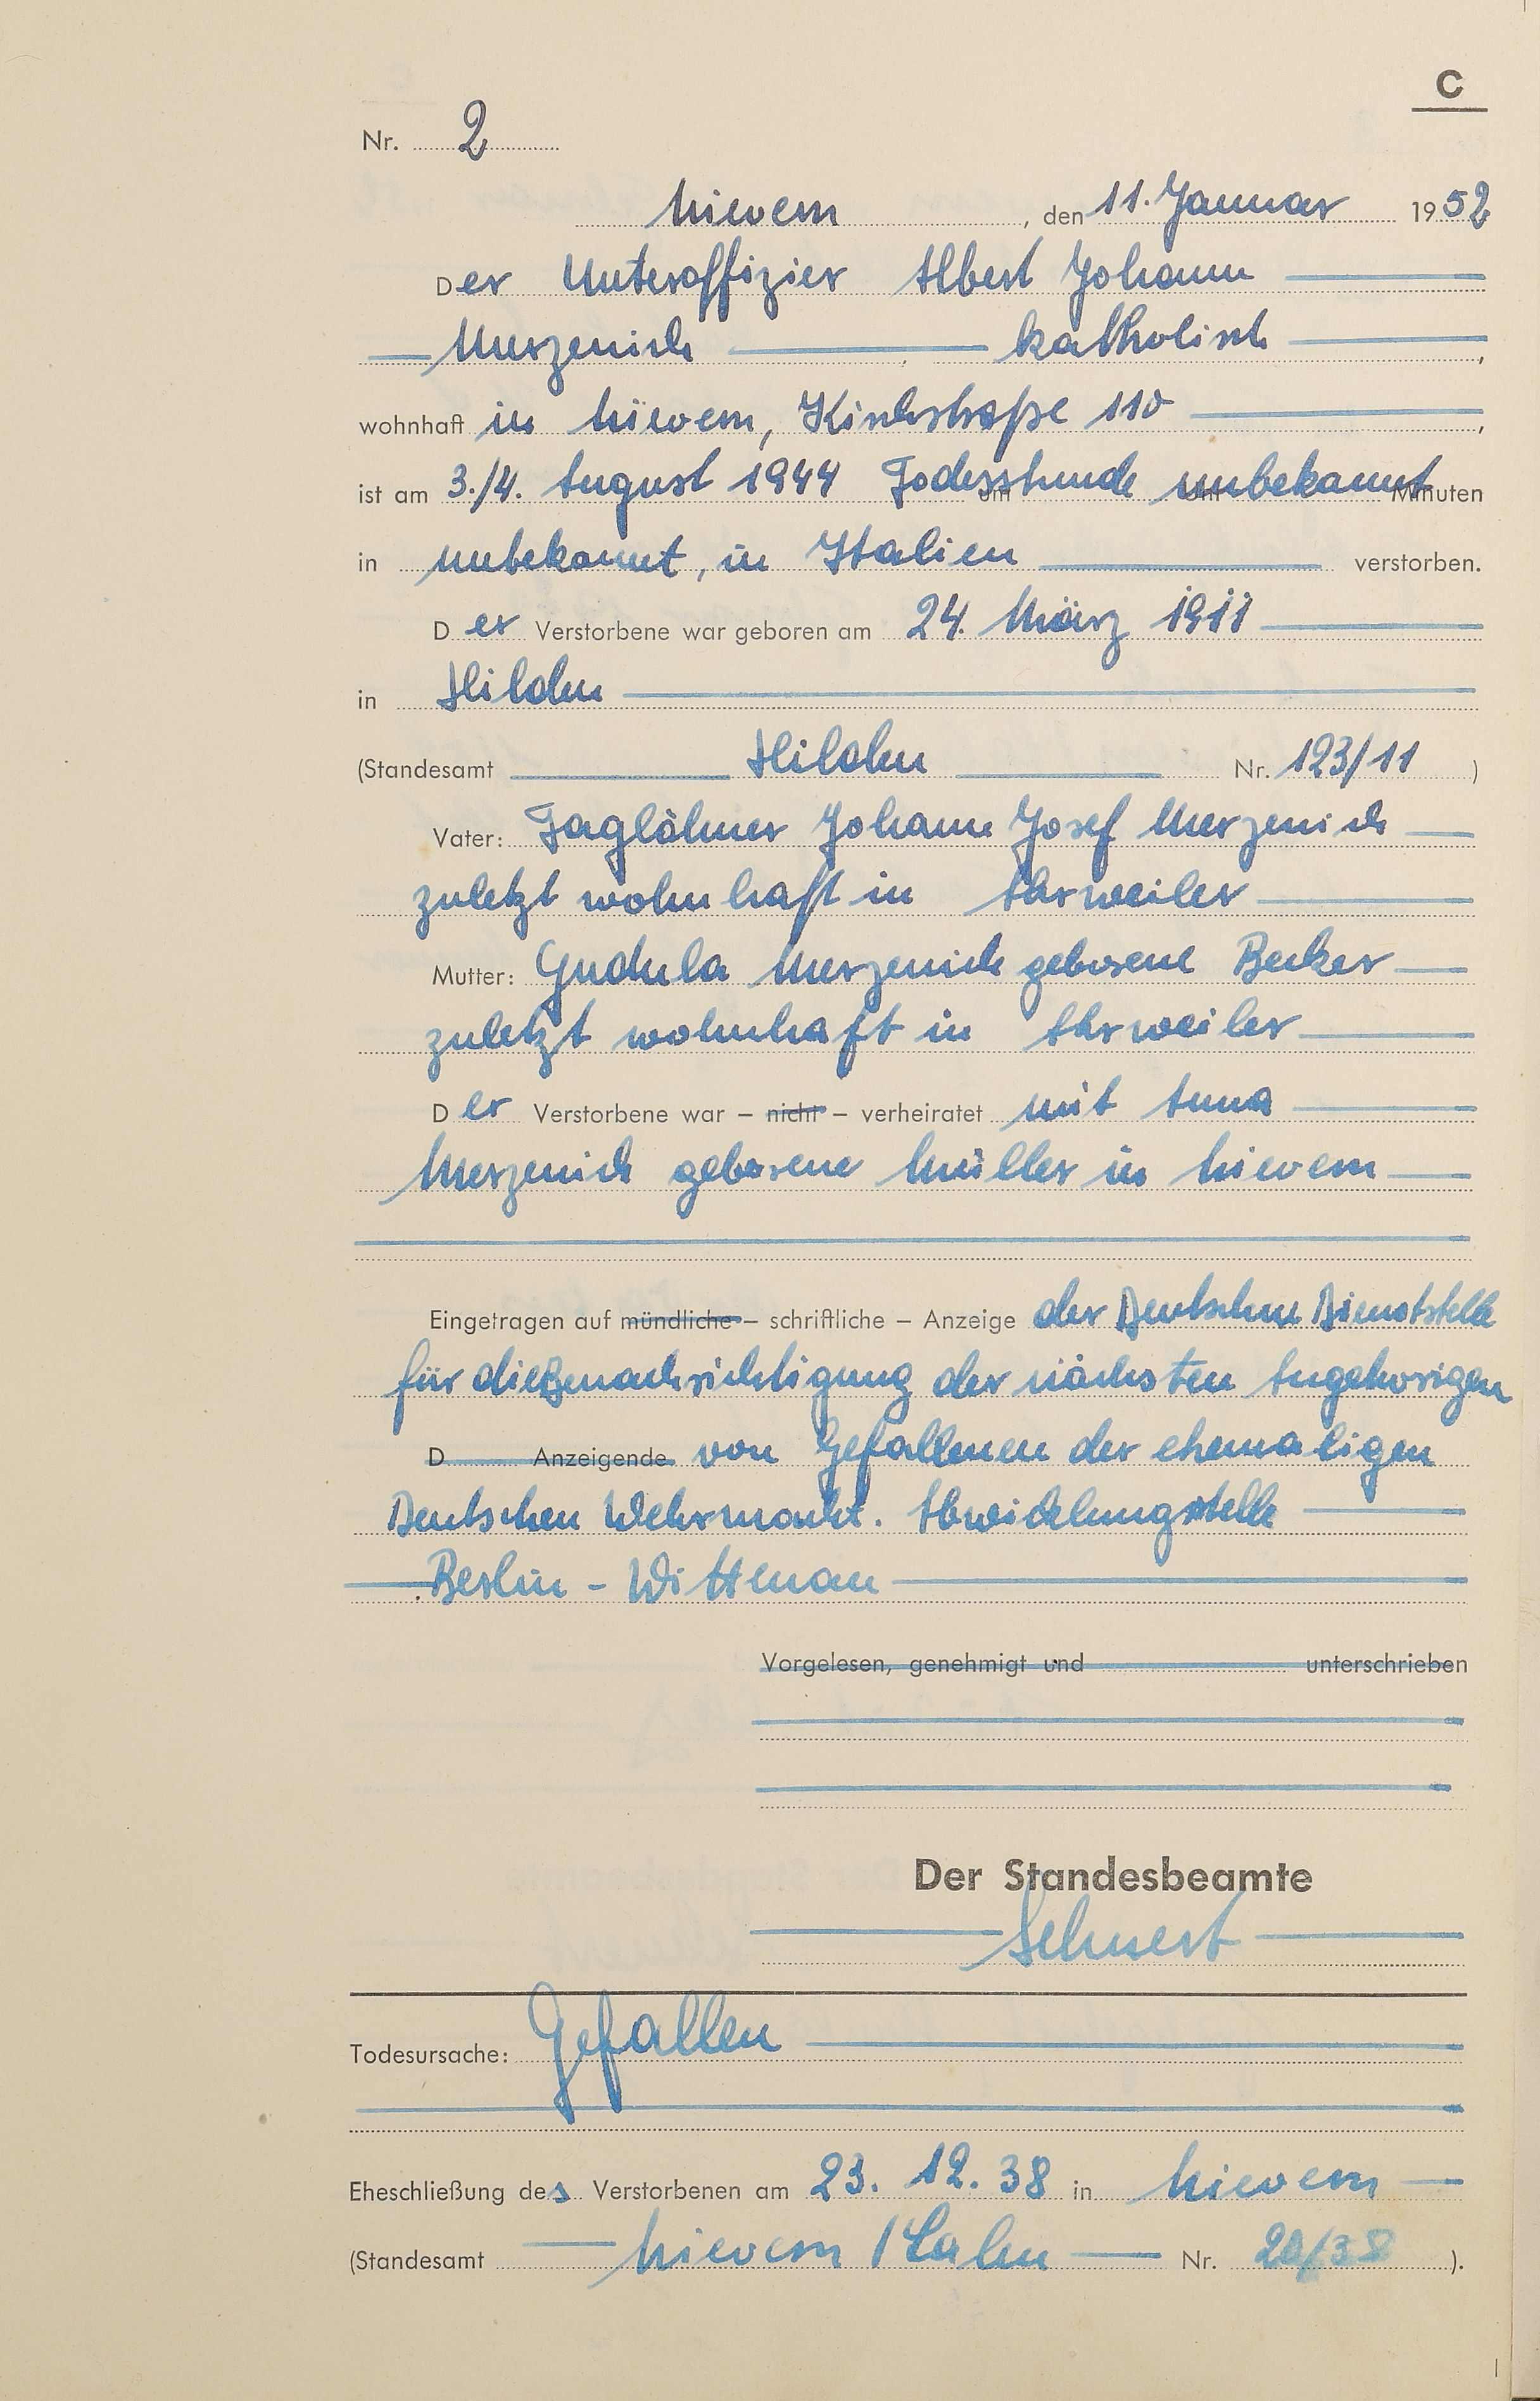 C
Nr. 2
Nievern, den 11. Januar 1952
Der Unteroffizier Albert Johann
Merzenich katholisch,
wohnhaft in Nievern, Kirchstraße 110,
ist am 3./4. August 1944 Todesstunde um unbekannt Uhr Minuten
in unbekannt, in Italien verstorben.
Der Verstorbene war geboren am 24. März 1911
in Hilden
(Standesamt Hilden Nr. 123/11)
Vater: Taglöhner Johann Josef Merzenich
zuletzt wohnhaft in Ahrweiler
Mutter: Gudula Merzenich geborene Becker
zuletzt wohnhaft in Ahrweiler
Der Verstorbene war – nicht – verheiratet mit Anna
Merzenich geborene Müller in Nievern
Eingetragen auf mündliche – schriftliche – Anzeige der Deutschen Dienststelle
für die Benachrichtigung der nächsten Angehörigen
D Anzeigende von Gefallenen der ehemaligen
Deutschen Wehrmacht. Abwicklungsstelle
Berlin - Wittenau
Vorgelesen, genehmigt und unterschrieben
Der Standesbeamte
Lehnert
Todesursache: Gefallen
Eheschließung des Verstorbenen am 23. 12. 38 in Nievern
(Standesamt Nievern / Lahn Nr. 20/38).